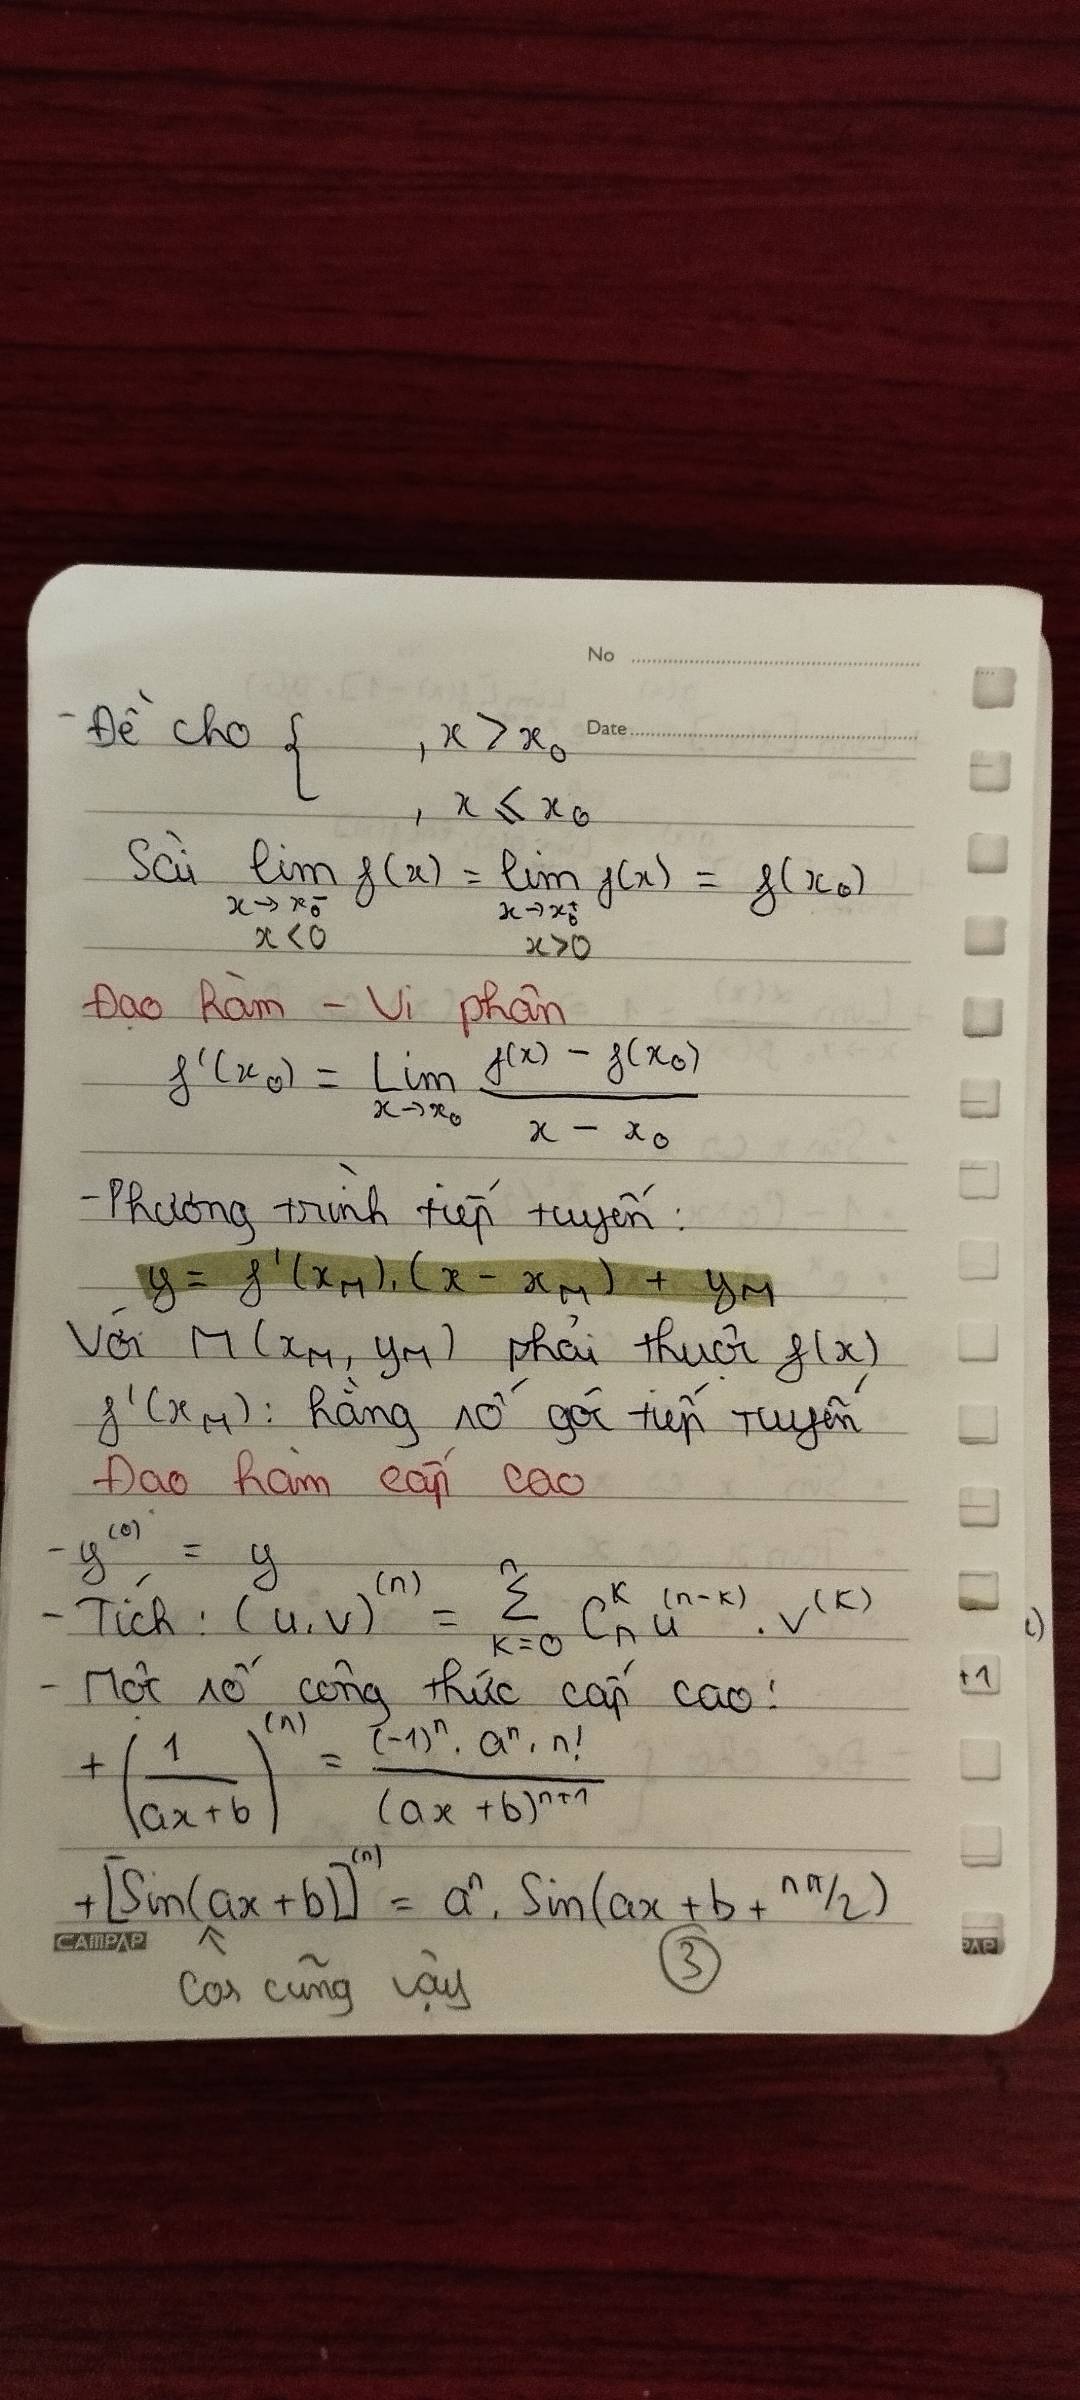 No
- Đề cho { , x > x₀ Date
, x ≤ x₀
Sài lim f(x) = lim f(x) = f(x₀)
x→x₀⁻ x→x₀⁺
x<0 x>0
Đạo hàm - Vi phân
f'(x₀) = Lim (f(x) - f(x₀))/(x - x₀)
x→x₀
- Phương trình tiếp tuyến:
y = f'(x_M).(x - x_M) + y_M
Với M(x_M, y_M) phải thuộc f(x)
f'(x_M): hằng số góc tiếp tuyến
Đạo hàm cấp cao
- y⁽⁰⁾ = y
- Tích: (u.v)⁽ⁿ⁾ = Σ_{K=0}^{n} C_n^K u^{(n-K)} . v^{(K)}
- Một số công thức cấp cao:
+1
+ (1/(ax+b))⁽ⁿ⁾ = ((-1)ⁿ. aⁿ. n!)/((ax+b)ⁿ⁺¹)
+ [Sin(ax+b)]⁽ⁿ⁾ = aⁿ. Sin(ax+b+ nπ/2)
CAMPAP ↑ PAP
Cos cũng vậy ③